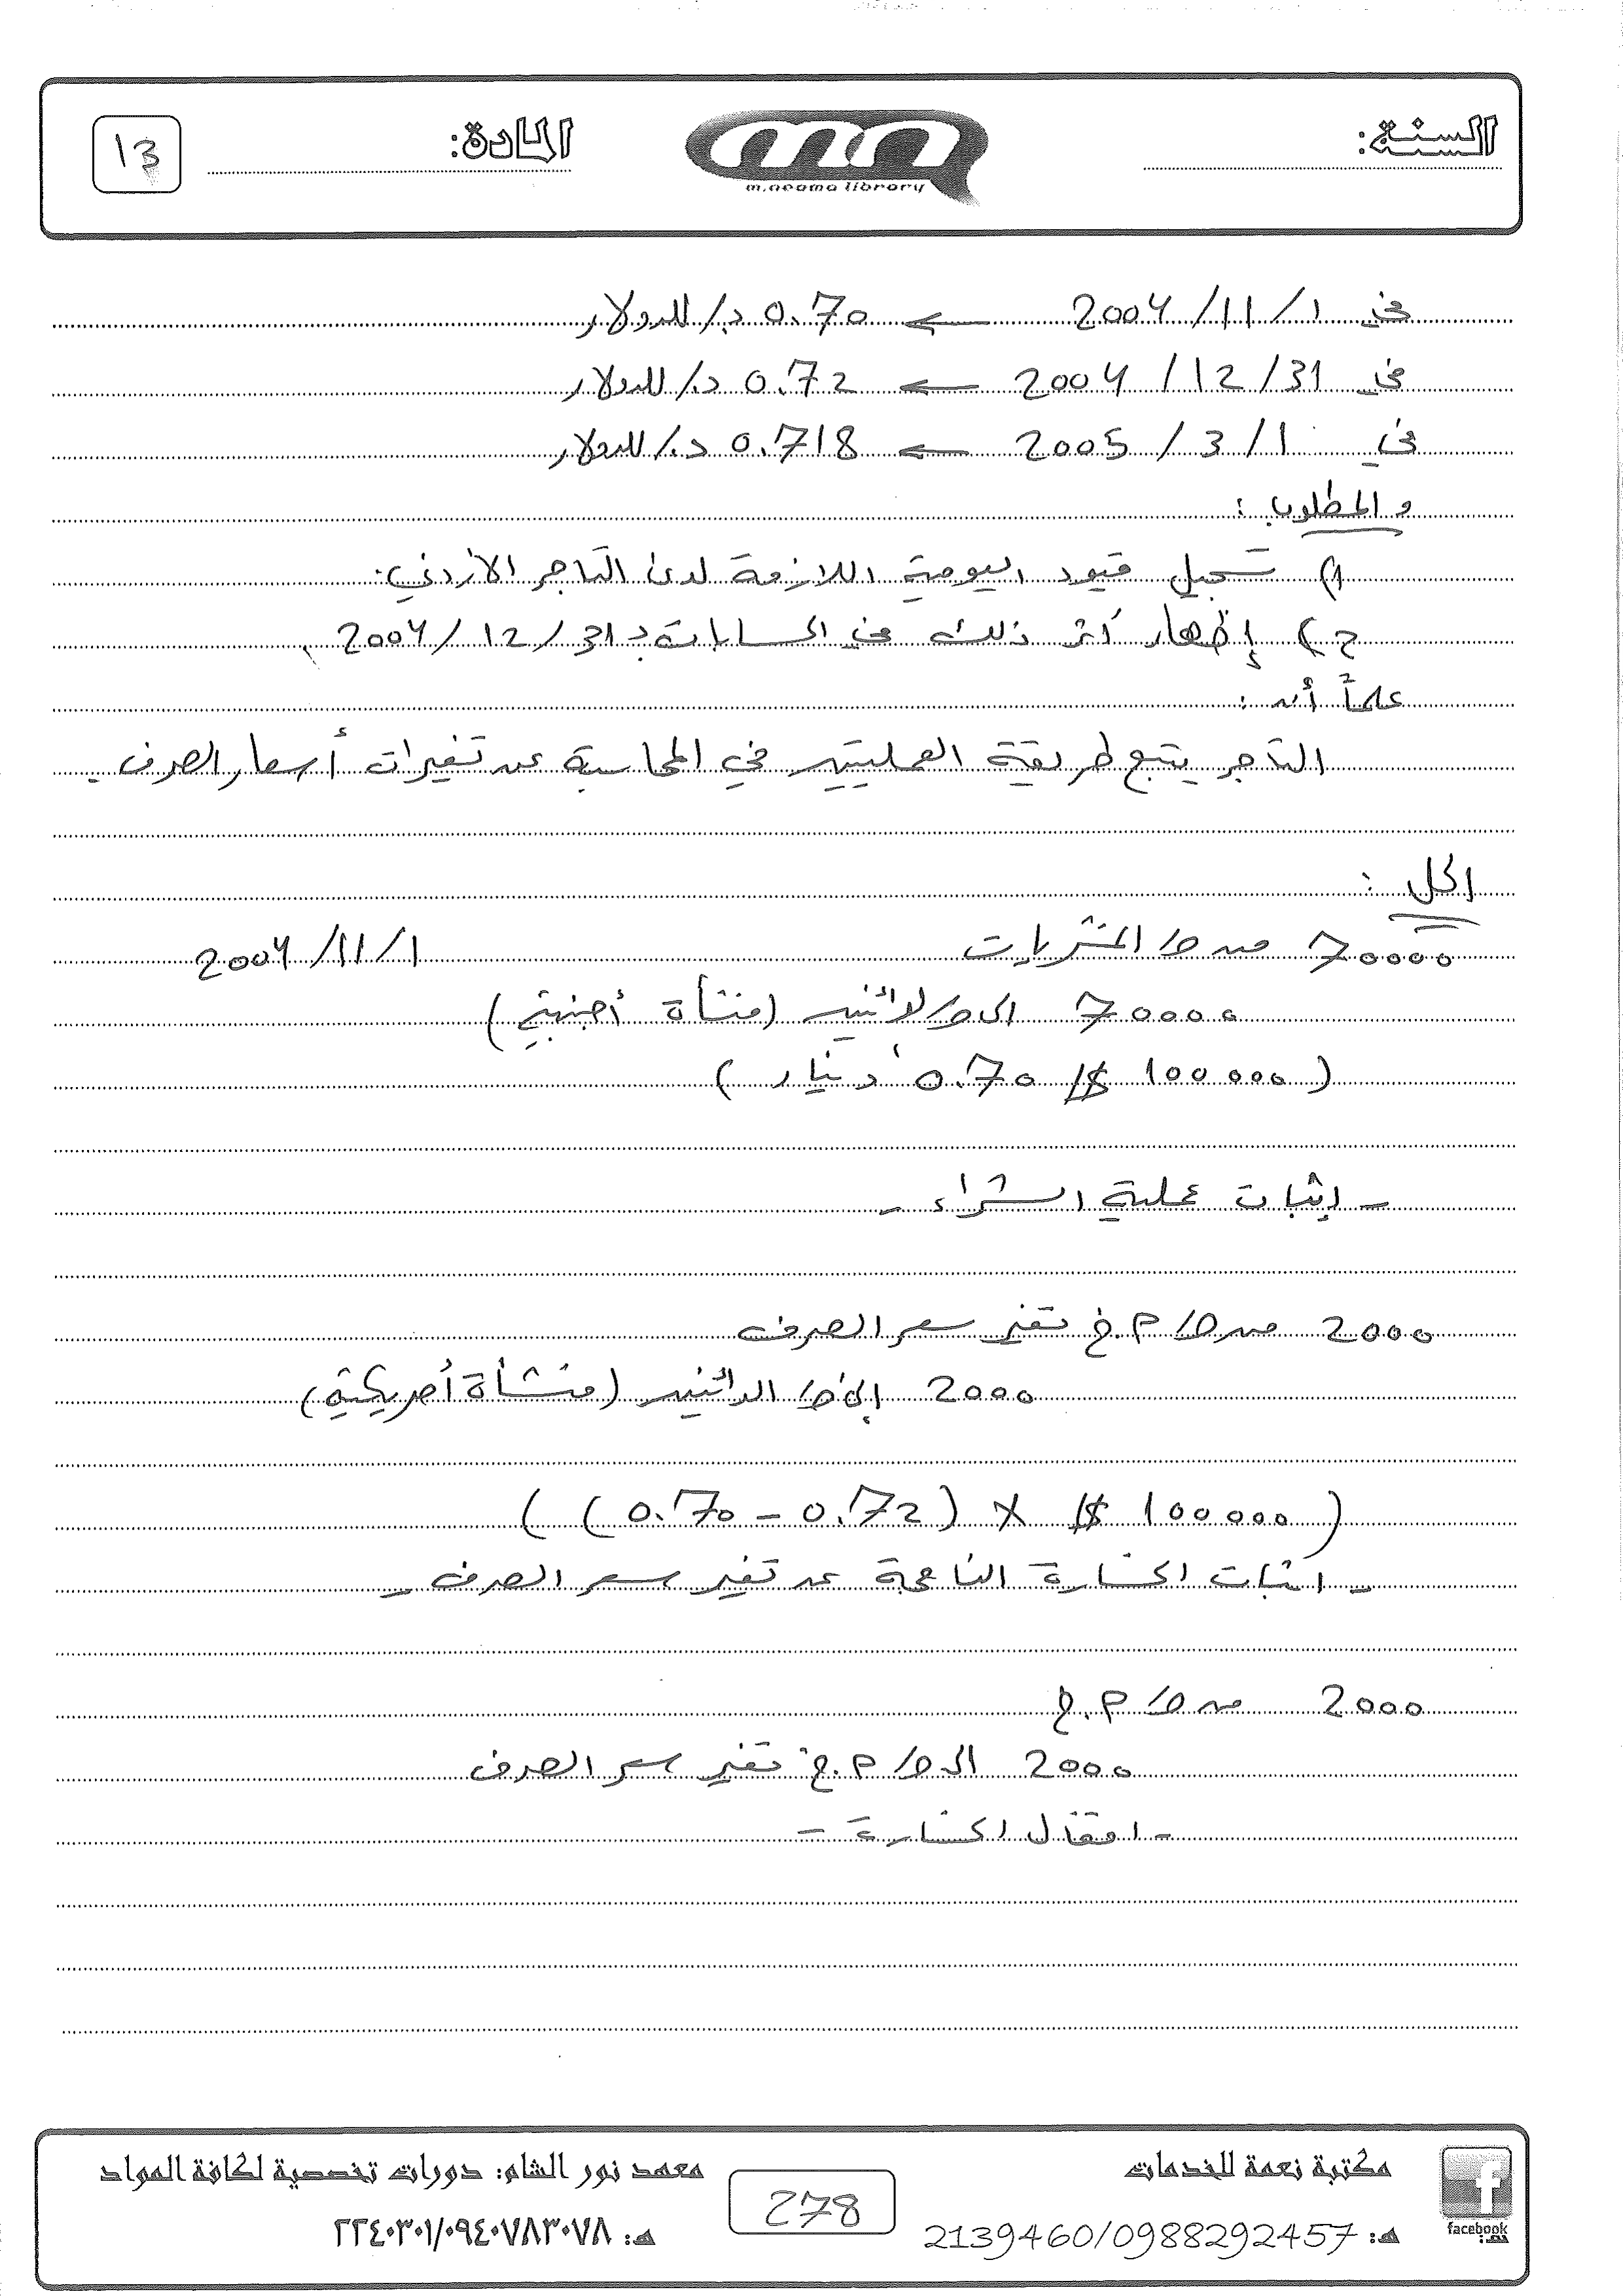 السنة:
m.neama library
المادة:
13
في 1/11/2004 ← 0.70 د./للدولار
في 31/12/2004 ← 0.72 د./للدولار
في 1/3/2005 ← 0.718 د./للدولار
والمطلوب:
1) تسجيل قيود اليومية اللازمة لدى التاجر الأردني.
2) إظهار أثر ذلك في الحسابات بـ 31/12/2004.
علماً أنه:
التاجر يتبع طريقة العمليتين في المحاسبة عن تغيرات أسعار الصرف.
الحل:
70000 من ح/ المشتريات 1/11/2004
70000 إلى ح/ الدائنين (منشأة أجنبية)
(100000 $/ 0.70 دينار)
- إثبات عملية الشراء -
2000 من ح/ م.خ تغير سعر الصرف
2000 إلى ح/ الدائنين (منشأة أمريكية)
(100000 $ × (0.72 - 0.70))
- اثبات الخسارة الناتجة عن تغير سعر الصرف -
2000 من ح/ م.خ
2000 الى ح/ م.خ تغير سعر الصرف
- اقفال الخسارة -
مكتبة نعمة للخدمات
هـ: 2139460/0988292457
facebook
278
معهد نور الشام: دورات تخصصية لكافة المواد
هـ: ٢٢٤٠٣٠١/٠٩٤٠٧٨٣٠٧٨